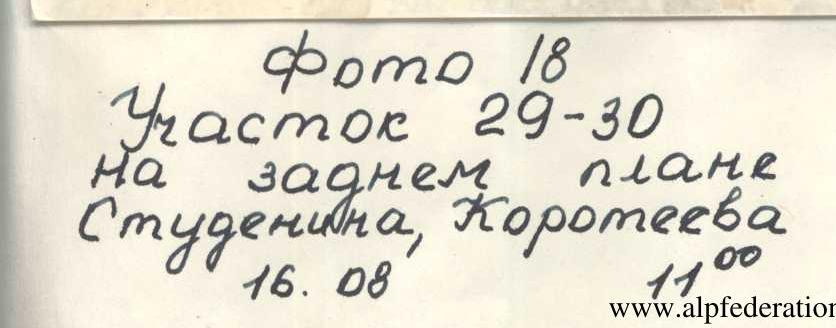 Фото 18
Участок 29-30
на заднем плане
Студенина, Коротеева
16. 08 11⁰⁰
www.alpfederation